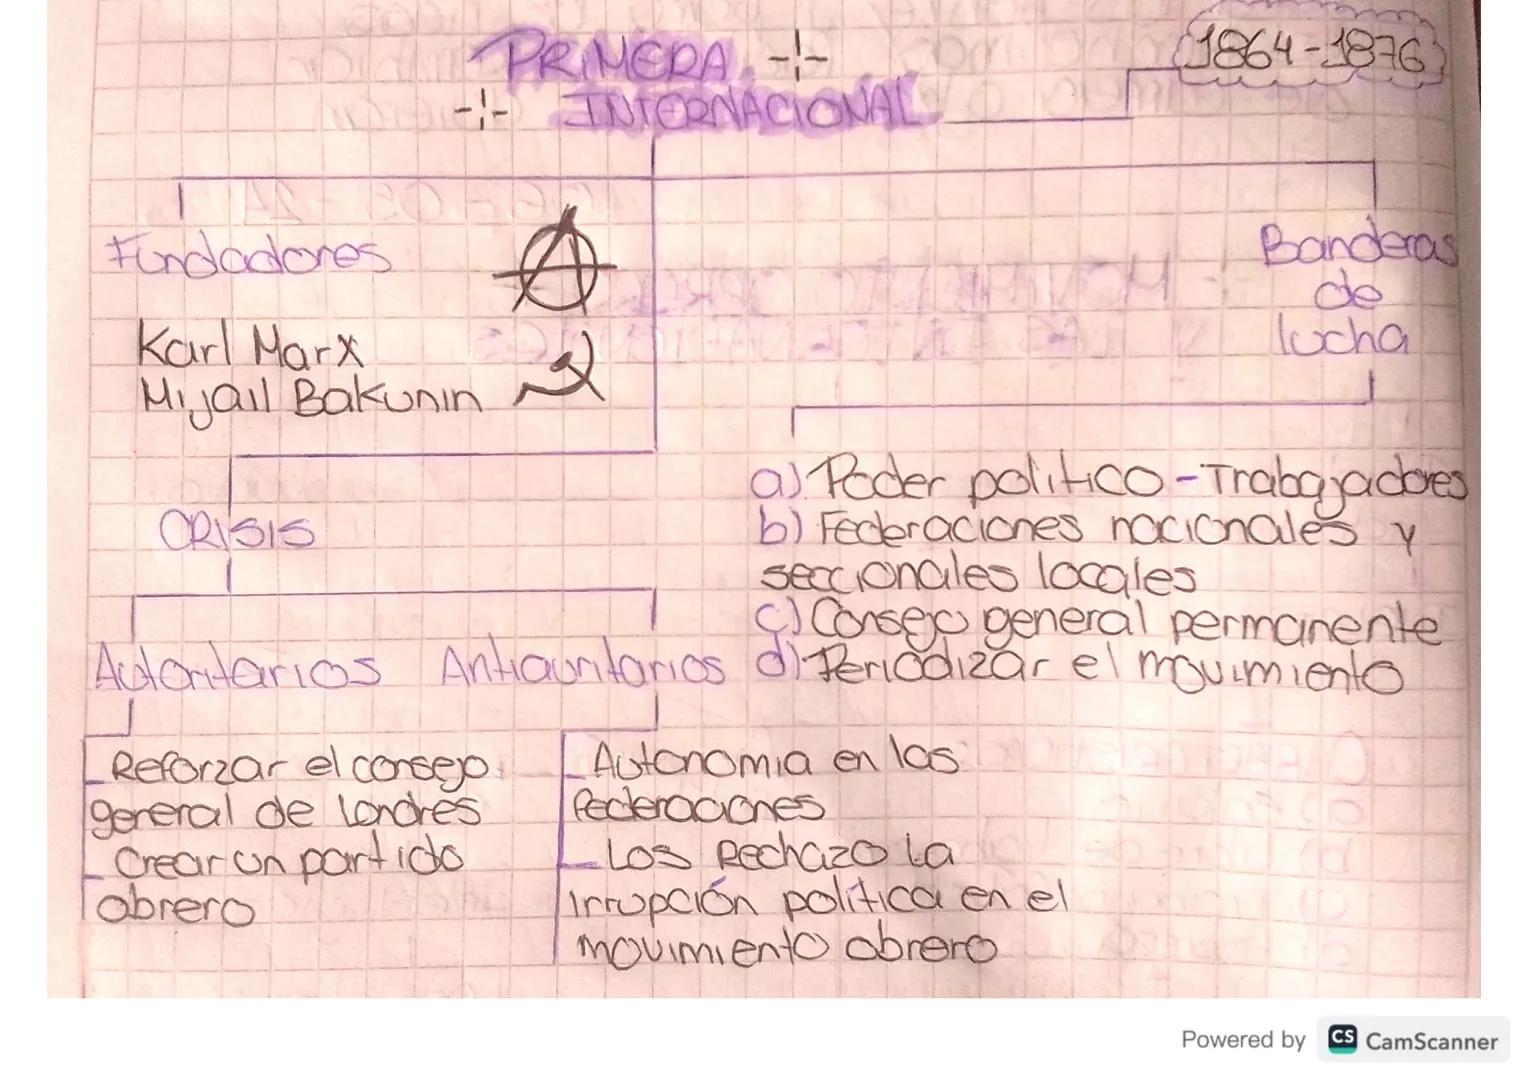 PRIMERA
INTERNACIONAL
1864-1876
Fundadores
Karl Marx
Mijail Bakunin
Banderas
de
lucha
a) Poder politico - Trabajadores
b) Federaciones nacionales y
seccionales locales
c) Consejo general permanente
d) Periodizar el movimiento
CRISIS
Autoritarios
- Reforzar el consejo
general de Londres
- Crear un partido
obrero
Antiauritarios
- Autonomia en las
federaciones
- Los Rechazo la
irrupción política en el
movimiento obrero
Powered by CS CamScanner